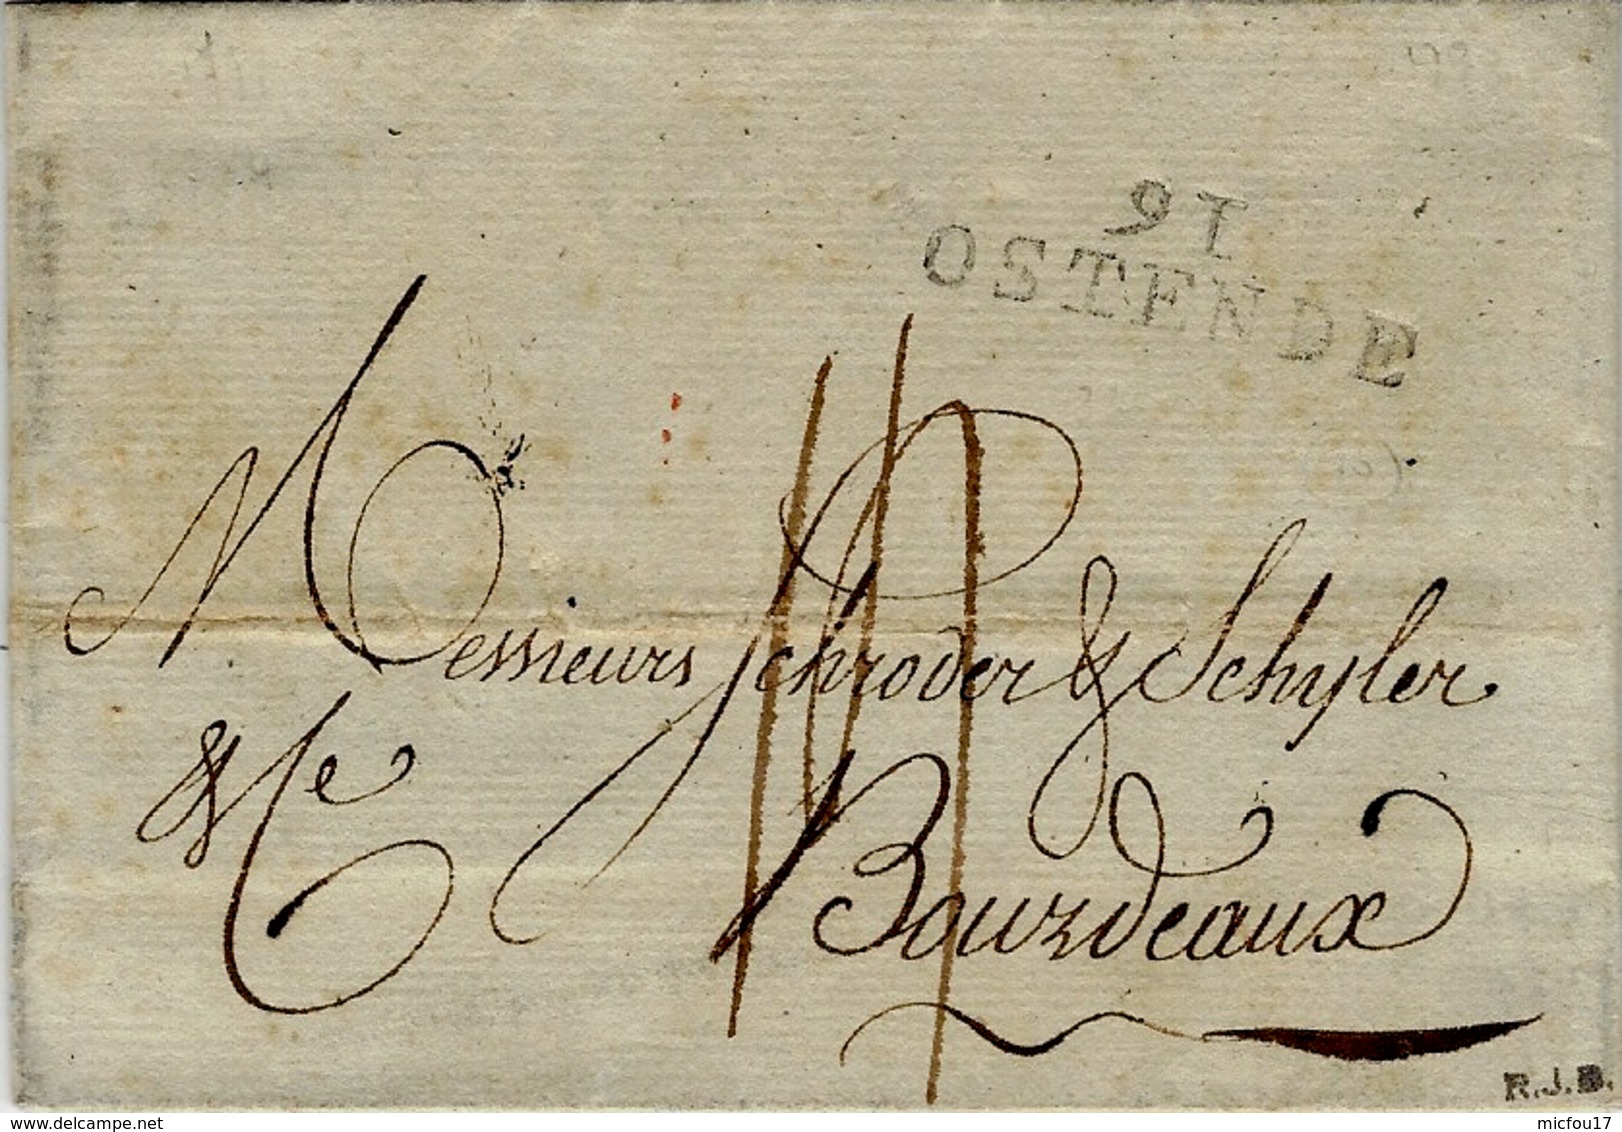 91
OSTENDE
Messieurs Schroder & Schyler
& Ce
Bourdeaux
R.J.B.
delcampe.net
micfou17